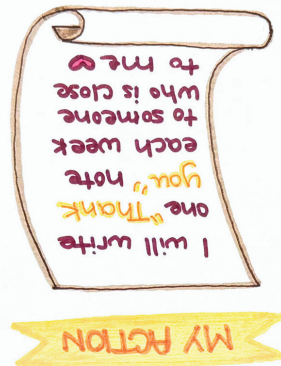 MY ACTION
I will write
one "Thank
you" note
each week
to someone
who is close
to me